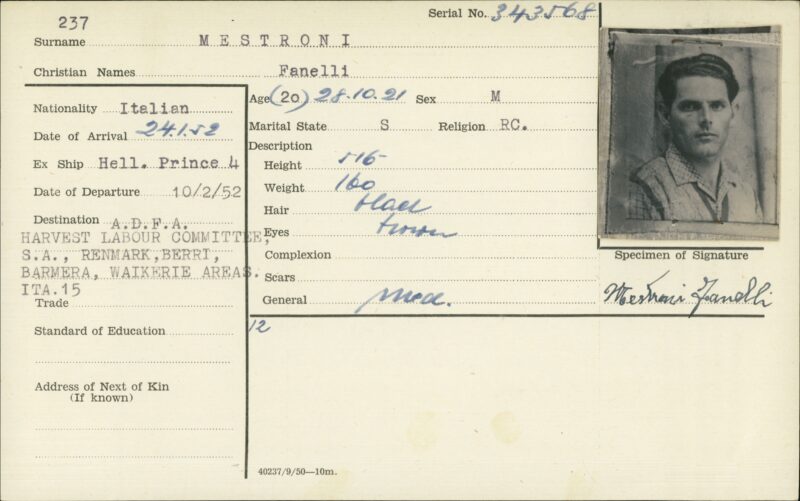 237
Serial No. 343568
Surname MESTRONI
Christian Names Fanelli
Nationality Italian
Date of Arrival 24.1.52
Ex Ship Hell. Prince 4
Date of Departure 10/2/52
Destination A.D.F.A.
HARVEST LABOUR COMMITTEE,
S.A., RENMARK,BERRI,
BARMERA, WAIKERIE AREAS.
ITA.15
Trade
Standard of Education
Address of Next of Kin
(If known)
Age (20) 28.10.21 Sex M
Marital State S Religion RC.
Description
Height 5'6"
Weight 160
Hair black
Eyes brown
Complexion
Scars
General med.
12
Specimen of Signature
Mestroni Fanelli
40237/9/50—10m.